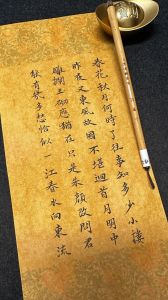 春花秋月何時了往事知多少小樓
昨夜又東風故國不堪回首月明中
雕欄玉砌應猶在只是朱顏改問君
能有幾多愁恰似一江春水向東流